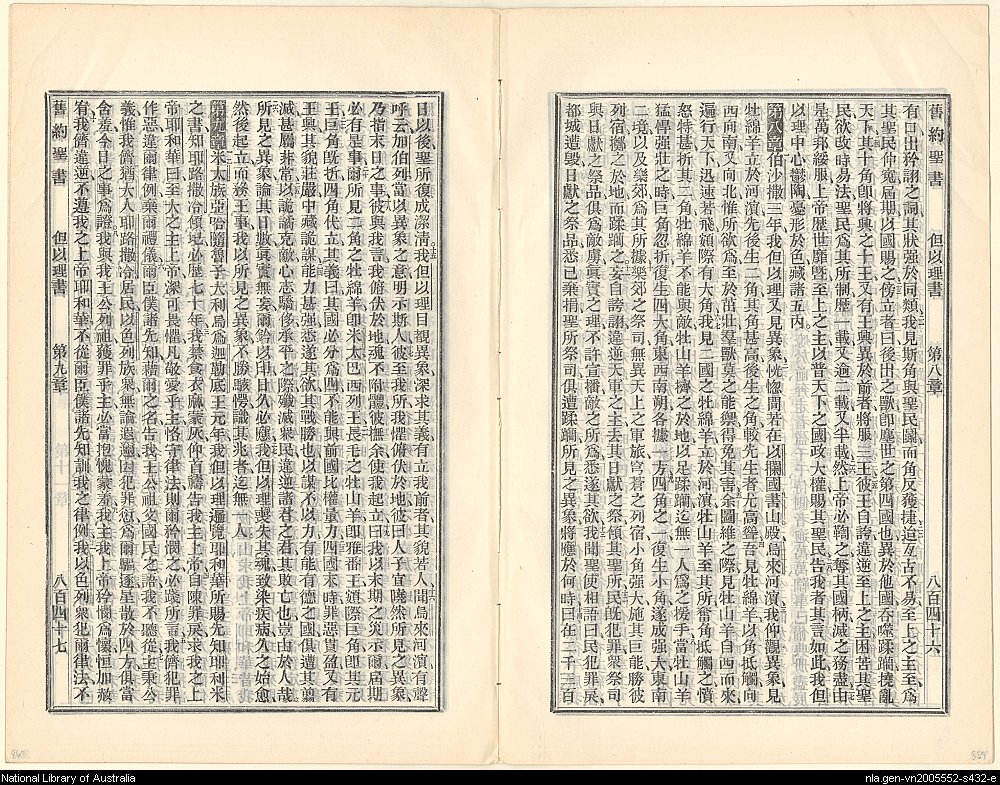 舊約聖書 但以理書 第八章 八百四十六
有口出矜詡之詞其狀强於同類我見斯角與聖民鬬而角反獲捷迨亙古不易至上之主至爲
其聖民伸寃屆期以國賜之傍立者曰後出之獸卽塵世之第四國也異於他國吞噬蹂躪撓亂
天下其十角卽將興之十王又有王興異於前者將服三王彼王自誇違逆至上之主困苦其聖
民欲改時易法聖民爲其所制歷一載又逾二載又半載然上帝必鞫之奪其國柄滅之務盡由
是萬邦綏服上帝歷世靡曁至上之主以普天下之國政大權賜其聖民告我者其言如此我但
以理中心鬱陶憂形於色藏諸五內
第八章伯沙撒三年我但以理又見異象恍惚間若在以攔國書山殿烏來河濱我仰觀異象見
牡綿羊立於河濱先後生二角其角甚高後生之角較先生者尤高聳吾見牡綿羊以角抵觸向
西向南又向北惟所欲爲至於茁壯羣獸莫之能禦得免其害余圖維之際見牡山羊自西而來
遍行天下迅速若飛額際有大角我見二國之牡綿羊立於河濱牡山羊至其所奮角抵觸之憤
怒特甚折其二角牡綿羊不能與敵牡山羊擠之於地以足蹂躪迄無一人爲之援手當牡山羊
猛悍强壯之時巨角忽折復生四大角東西南朔各據一方四角之一復生小角遂成强大東南
二境以及樂郊爲其所據樂郊之祭司無異天上之軍旅穹蒼之列宿小角强大施其巨能勝彼
列宿擲之於地而蹂躪之妄自誇詡違逆天軍之主去其日獻之祭傾其聖所民旣犯罪衆祭司
與日獻之祭品俱爲敵虜眞實之理不許宣播敵之所爲悉遂其欲我聞聖使相語曰民犯罪戾
都城遭毀日獻之祭品悉已棄捐聖所祭司俱遭蹂躪所見之異象將應於何時曰在二千三百
日以後聖所復成潔淸我但以理目覩異象深求其義有立我前者其貌若人聞烏來河濱有聲
呼云加伯列當以異象之意明示斯人彼至我所我懼俯伏於地彼曰人子宜曉然所見之異象
乃指末日之事彼與我言我俯伏於地魂不附體彼撫余使我起立曰我以末期之災示爾屆期
必有是事爾所見二角之牡綿羊卽米太巴西列王長毛之牡山羊卽雅番王額際巨角卽其元
王巨角旣折四角代立其義曰其國必分爲四不能與前國比權量力四國末時罪惡貫盈又有
王興其貌壯嚴中藏詭謀能力甚强悉遂其欲其戰勝也以謀不以力有能有德之國俱遭其翦
滅甚屬非常以詭譎克敵心志驕侈承平之際殲滅衆民違逆諸君之君其敗亡也豈由於人哉
所見之異象論其日數眞實無妄爾鈐以印日久必應我但以理喪失其魂致染疾病久之始愈
然後起立而務王事我以所見之異象不勝駭愕識其兆者迄無一人
第九章米太族亞哈隨魯子大利烏爲迦勒底王元年我但以理遍覽耶和華所賜先知耶利米
之書知耶路撒冷傾圮必歷七十年我禁食衣麻蒙灰仰首禱告我主上帝自陳罪戾求我之上
帝耶和華曰至大之主上帝深可畏懼凡敬愛乎主恪守律法則爾矜憫之必踐所言我儕犯罪
作惡違爾律例棄爾禮儀爾臣僕諸先知藉爾之名告我王公列祖爰及國民之諸我不聽從主秉公
義惟我儕猶大人耶路撒冷居民以色列族衆無論遐邇因犯罪愆爲爾驅逐星散於四方俱當
含羞今日之事爲證我與我王公列祖獲罪乎主必當抱愧蒙羞我主我上帝矜憫爲懷恒加赦
宥我儕違逆不遵我之上帝耶和華不從爾臣僕諸先知訓我之律例我以色列衆犯爾律法不
舊約聖書 但以理書 第九章 八百四十七
National Library of Australia
nla.gen-vn2005552-s432-e